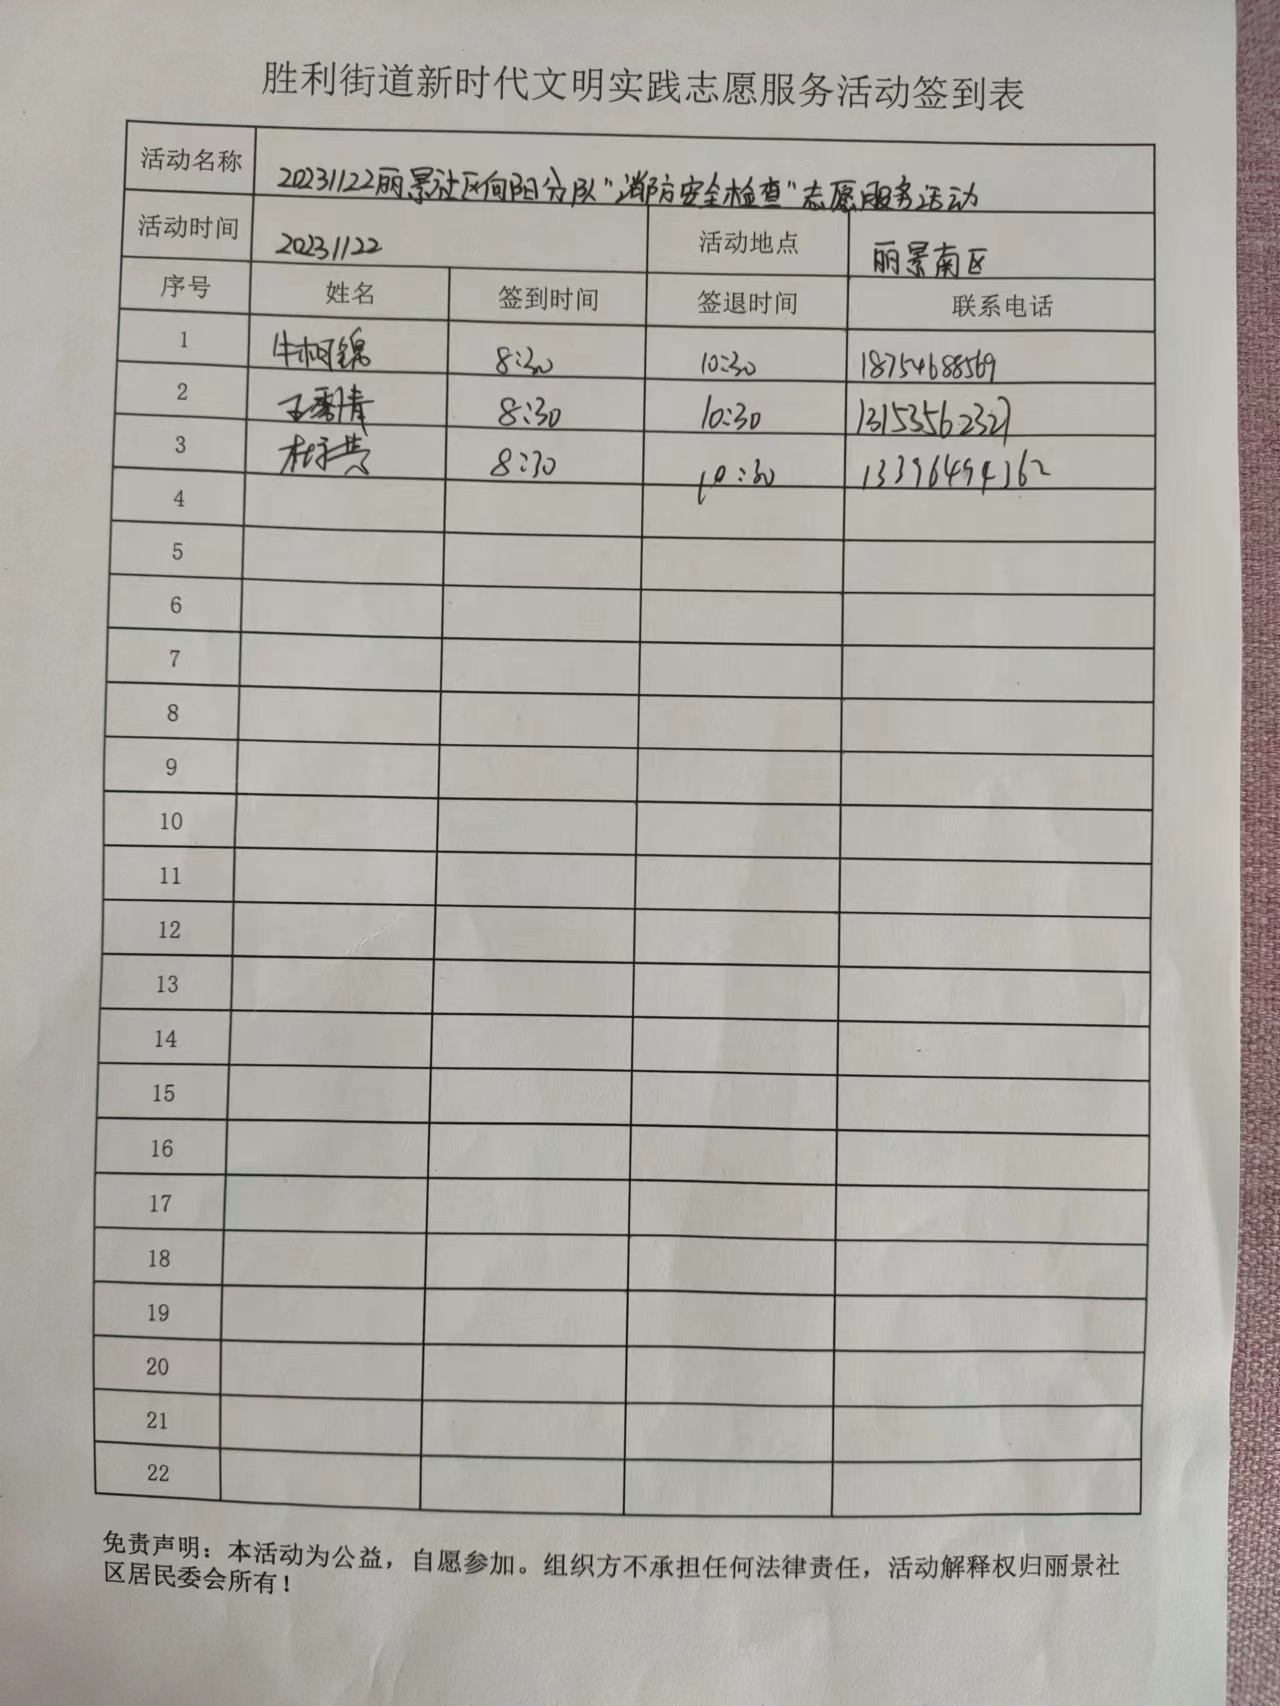 胜利街道新时代文明实践志愿服务活动签到表
活动名称 20231122丽景社区向阳分队“消防安全检查”志愿服务活动
活动时间 20231122 活动地点 丽景南区
序号 姓名 签到时间 签退时间 联系电话
1 牛柯锦 8:30 10:30 18754688569
2 王秀清 8:30 10:30 13153562327
3 8:30 10:30 13396494162
4
5
6
7
8
9
10
11
12
13
14
15
16
17
18
19
20
21
22
免责声明：本活动为公益，自愿参加。组织方不承担任何法律责任，活动解释权归丽景社
区居民委会所有！